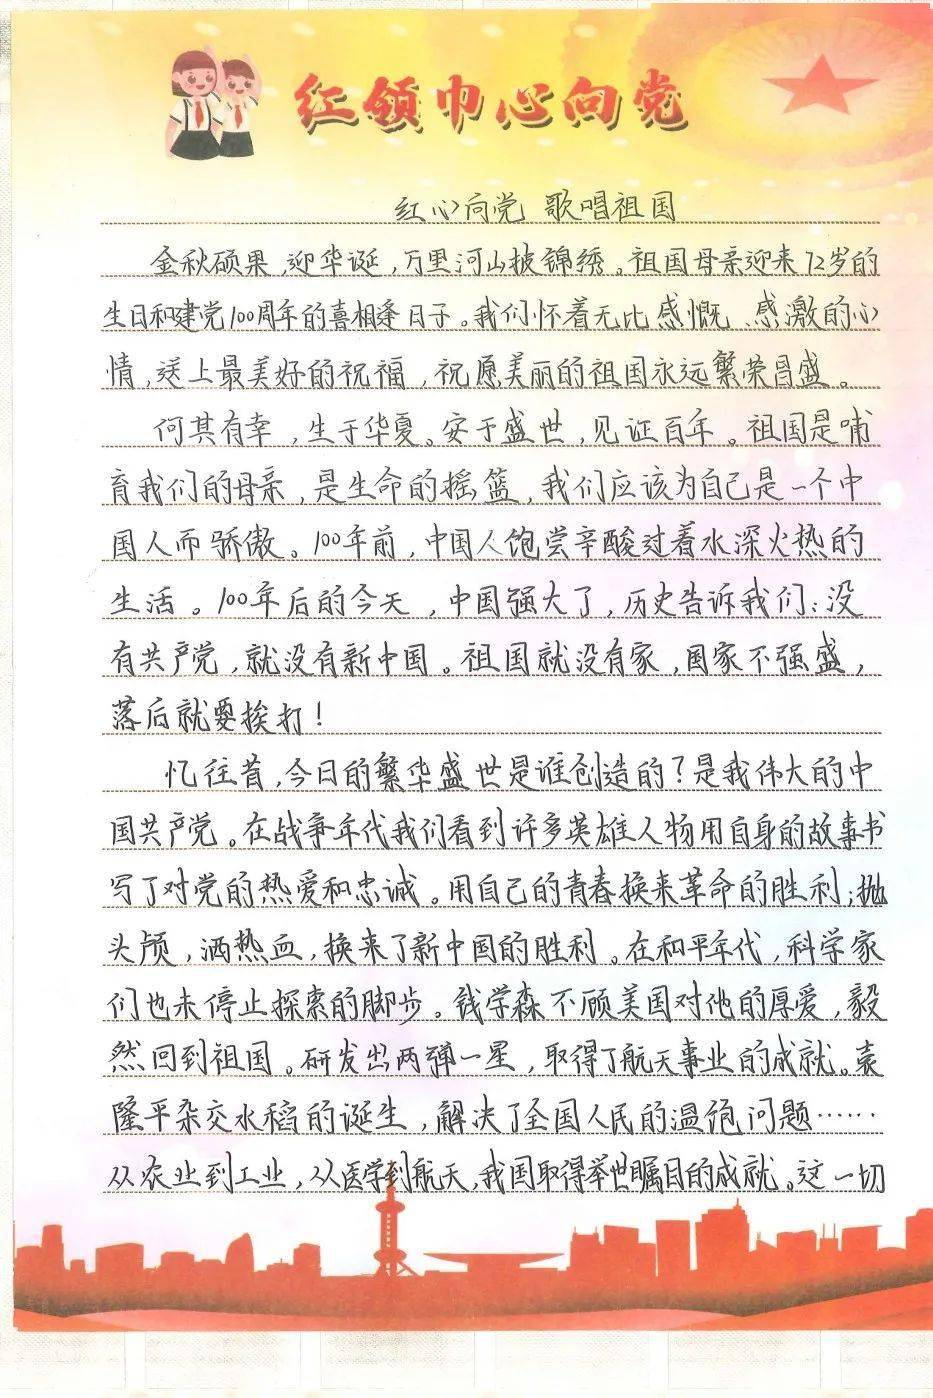 红领巾心向党
红心向党 歌唱祖国
金秋硕果，迎华诞，万里河山披锦绣。祖国母亲迎来72岁的
生日和建党100周年的喜相逢日子。我们怀着无比感慨、感激的心
情，送上最美好的祝福，祝愿美丽的祖国永远繁荣昌盛。
何其有幸，生于华夏。安于盛世，见证百年。祖国是哺
育我们的母亲，是生命的摇篮，我们应该为自己是一个中
国人而骄傲。100年前，中国人饱尝辛酸过着水深火热的
生活。100年后的今天，中国强大了，历史告诉我们：没
有共产党，就没有新中国。祖国就没有家，国家不强盛，
落后就要挨打！
忆往昔，今日的繁华盛世是谁创造的？是我伟大的中
国共产党。在战争年代我们看到许多英雄人物用自身的故事书
写了对党的热爱和忠诚。用自己的青春换来革命的胜利；抛
头颅，洒热血，换来了新中国的胜利。在和平年代，科学家
们也未停止探索的脚步。钱学森不顾美国对他的厚爱，毅
然回到祖国。研发出两弹一星，取得了航天事业的成就。袁
隆平杂交水稻的诞生，解决了全国人民的温饱问题……
从农业到工业，从医学到航天，我国取得举世瞩目的成就。这一切